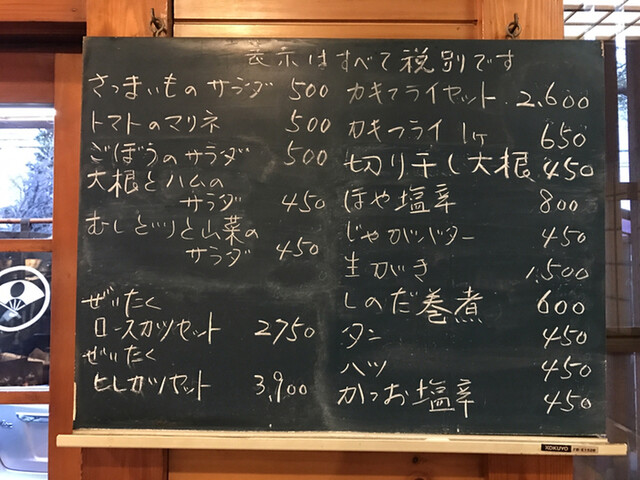 表示はすべて税別です
さつまいものサラダ 500
トマトのマリネ 500
ごぼうのサラダ 500
大根とハムの
サラダ 450
むしどりと山菜の
サラダ 450
ぜいたく
ロースカツセット 2750
ぜいたく
ヒレカツセット 3,900
カキフライセット 2,600
カキフライ 1ケ 650
切り干し大根 450
ほや塩辛 800
じゃがバター 450
生がき 1,500
しのだ巻煮 600
タン 450
ハツ 450
かつお塩辛 450
KOKUYO